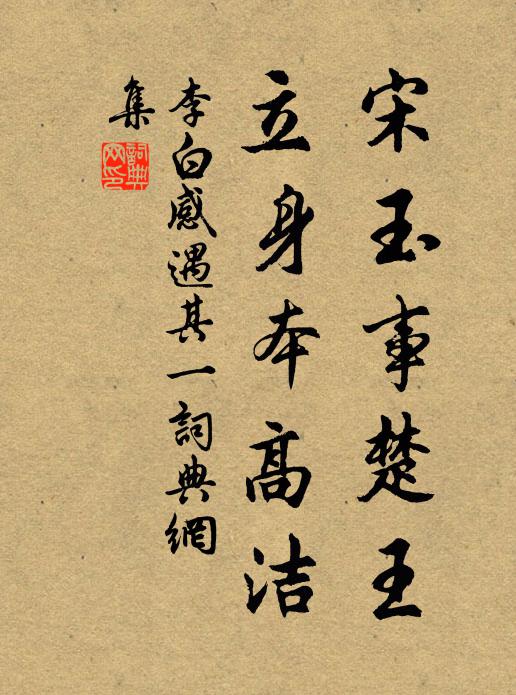 宋玉事楚王
立身本高洁
李白感遇其一詞典網
集
詞典
网印